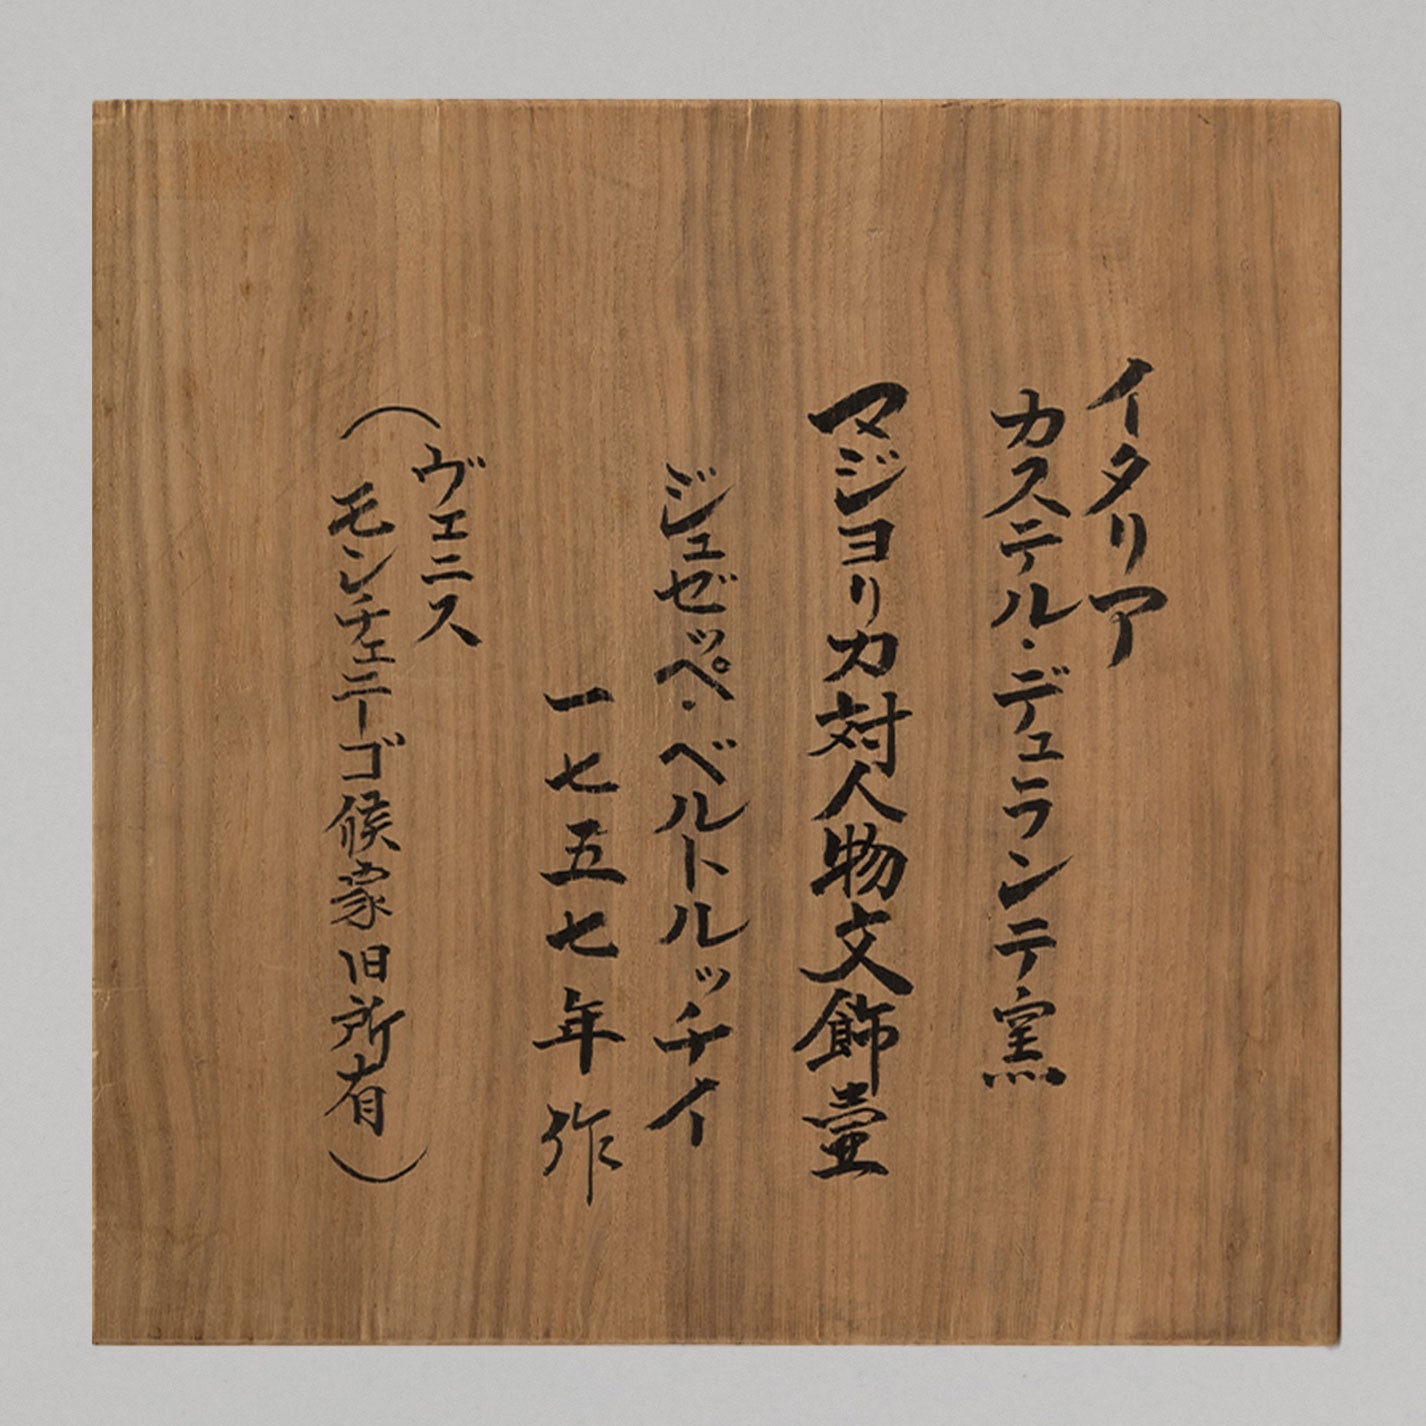 イタリア
カステル・デュランテ窯
マジヨリカ対人物文飾壷
ジュゼッペ・ベルトルッチイ
一七五七年作
（ヴェニス
モンチェニーゴ候家旧所有）